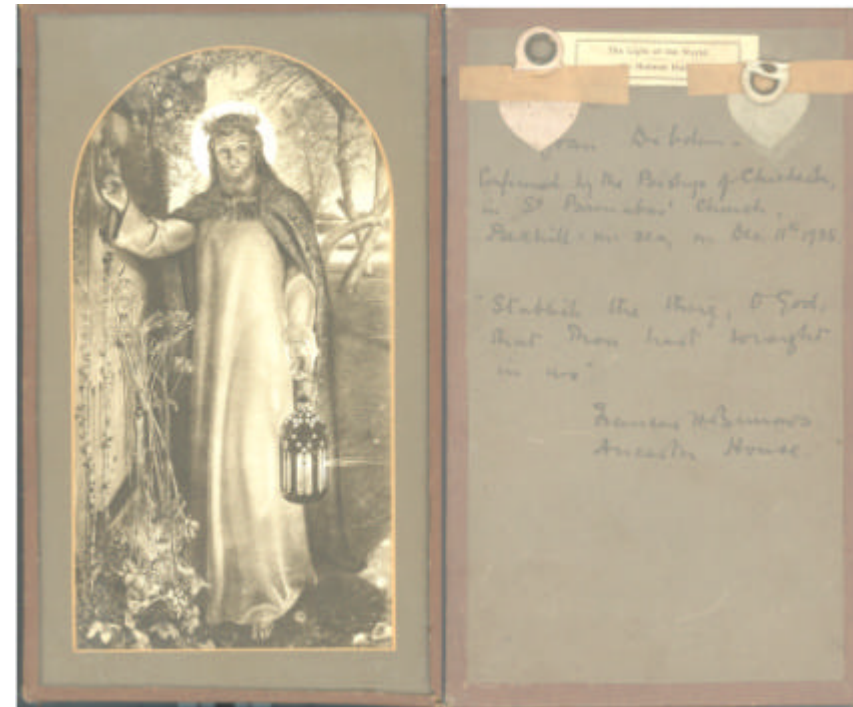 The Light of the World
Holman
Joan
Confirmed by the Bishop of Chichester,
in St Barnabas' Church,
Bexhill-on-Sea, on Dec. 11th
"Stablish the thing, O God,
that Thou hast wrought
in us"
Frances
Ancaster House.